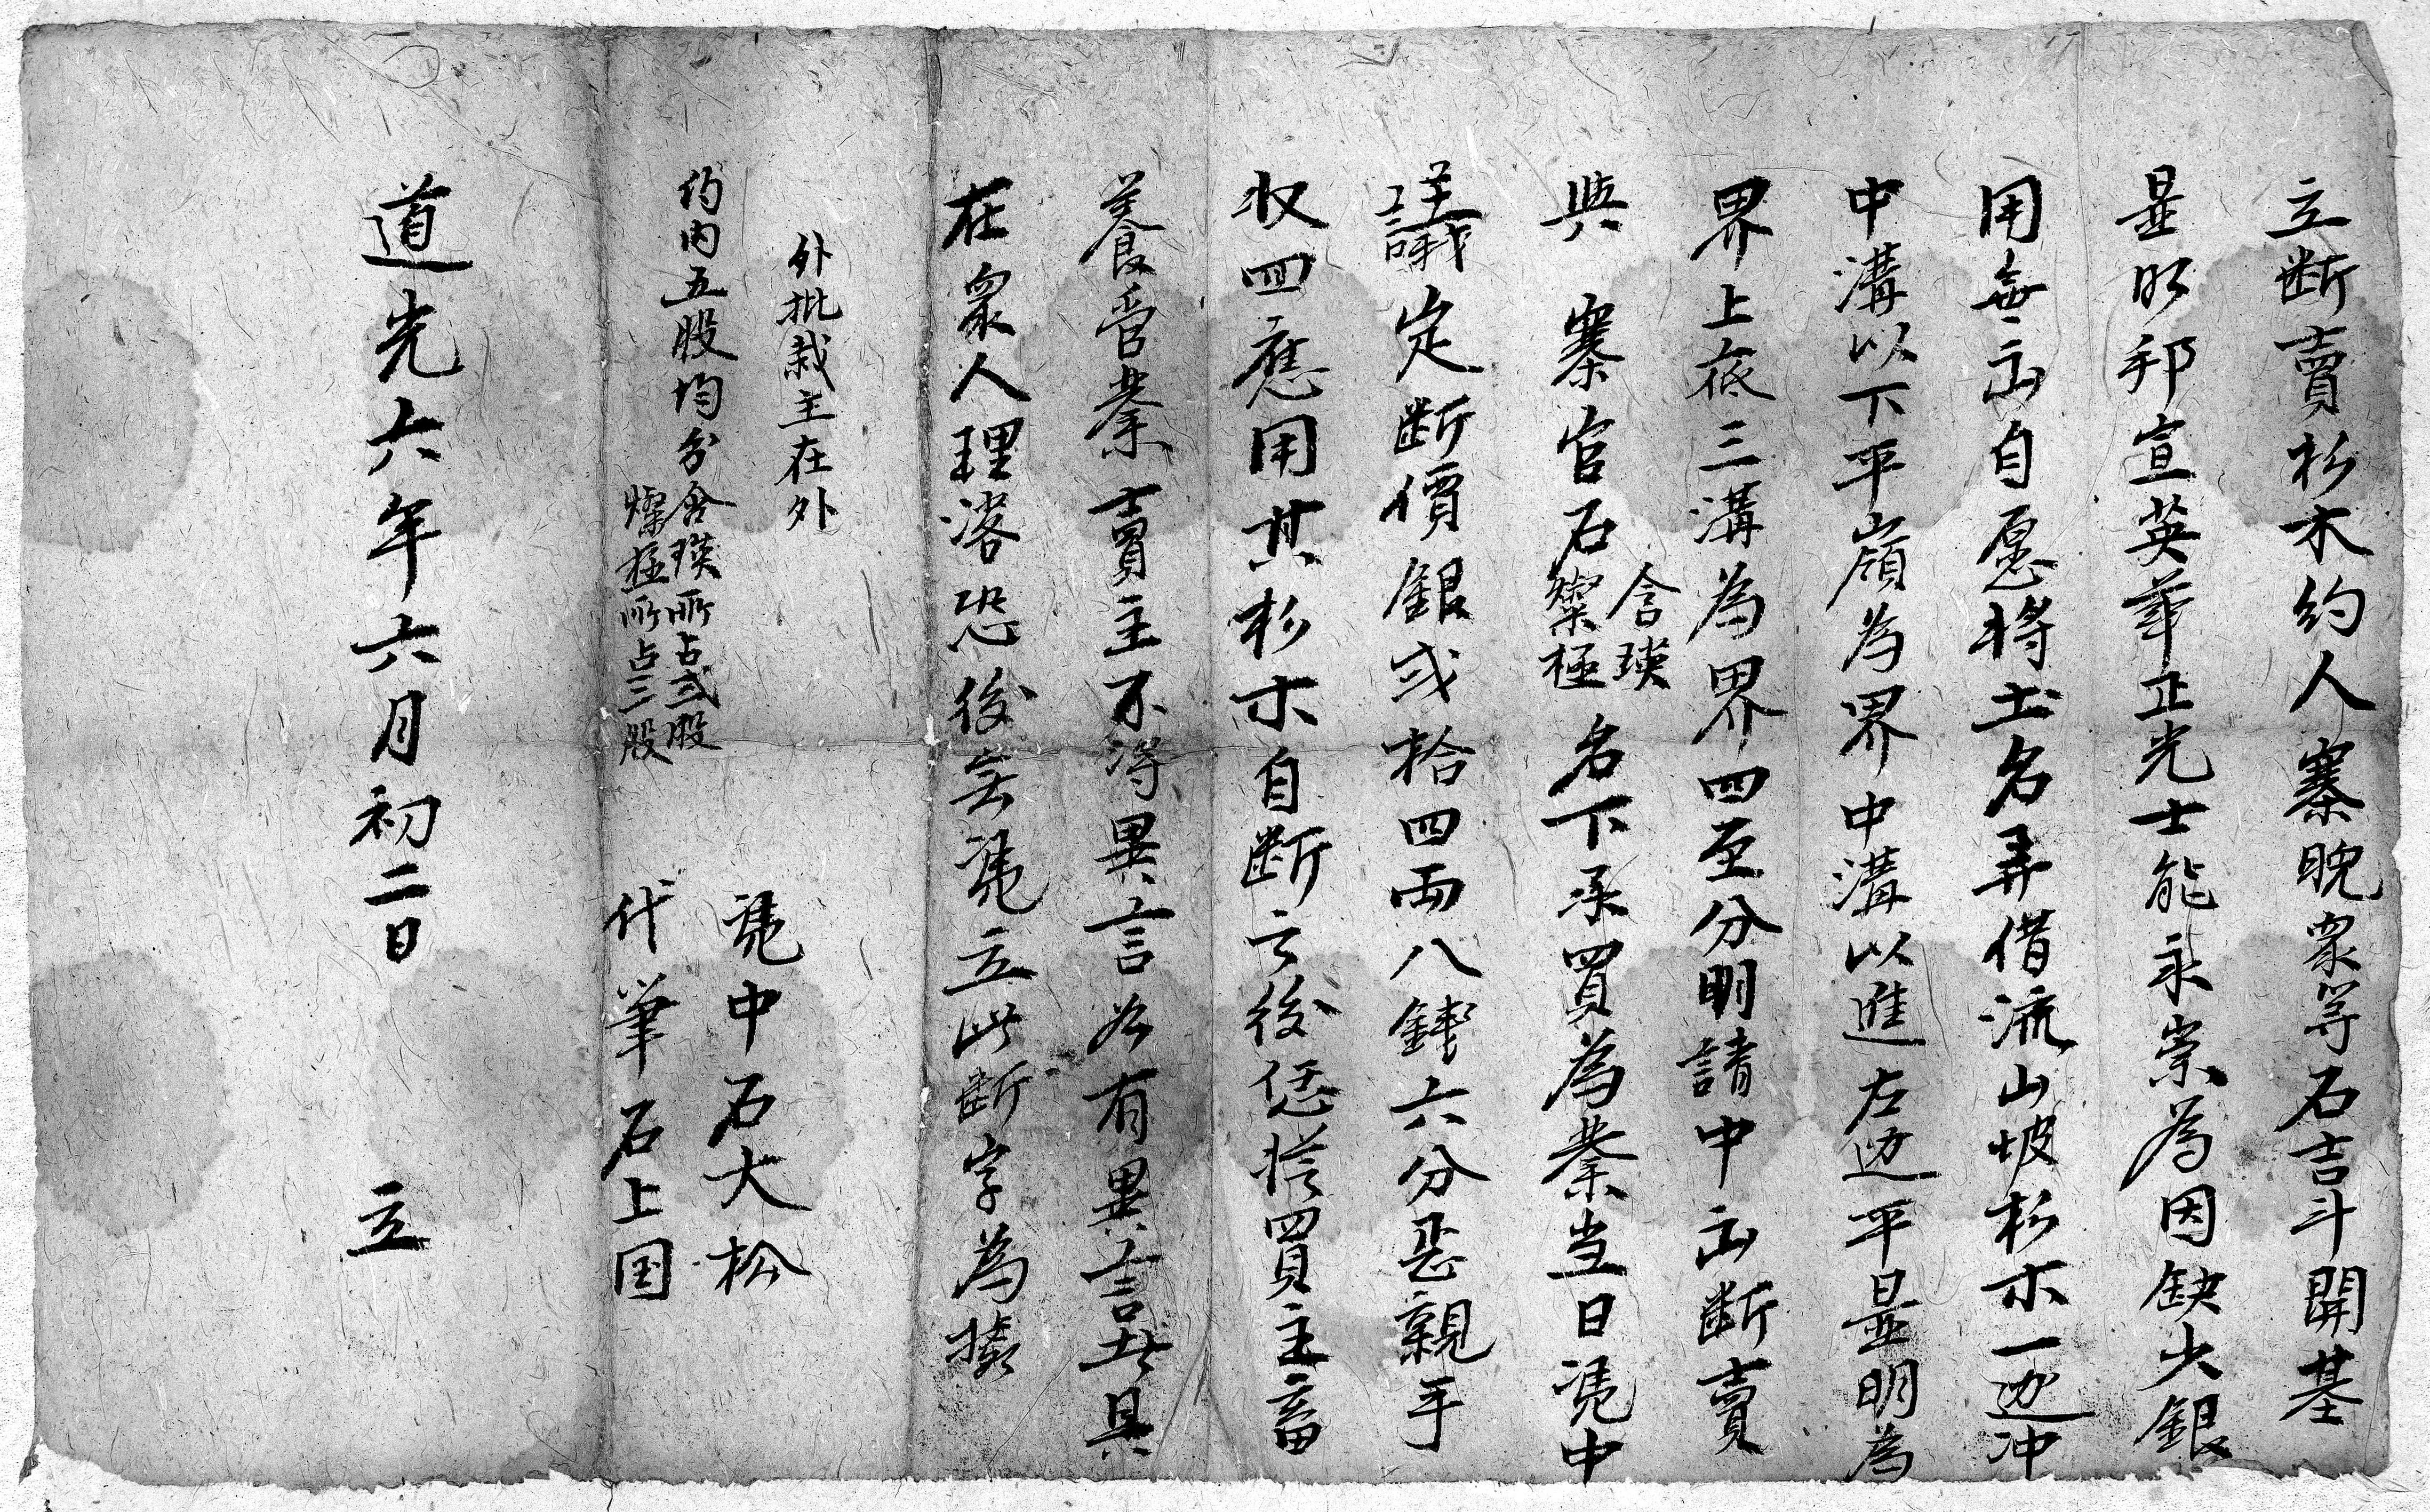 立断賣杉木约人寨晚眾等石吉斗開基
昰明邦宣英華正光士能永崇為因缺少銀
用無出自愿将土名弄借流山坡杉木一边冲
中溝以下平嶺為界中溝以進左边平昰明為
界上底三溝為界四至分明請中出断賣
與寨官石含瑛燦極名下承買為業当日凴中
議定断價銀弍拾四両八錢六分恶親手
收回應用其杉木自断之後恁從買主畜
養管業賣主不得異言如有異言其具
在眾人理落恐後無凴立此断字為據
外批栽主在外
约内五股均分含瑛所占弍股
燦極所占三股
凴中石大松
代筆石上国
道光六年六月初二日 立